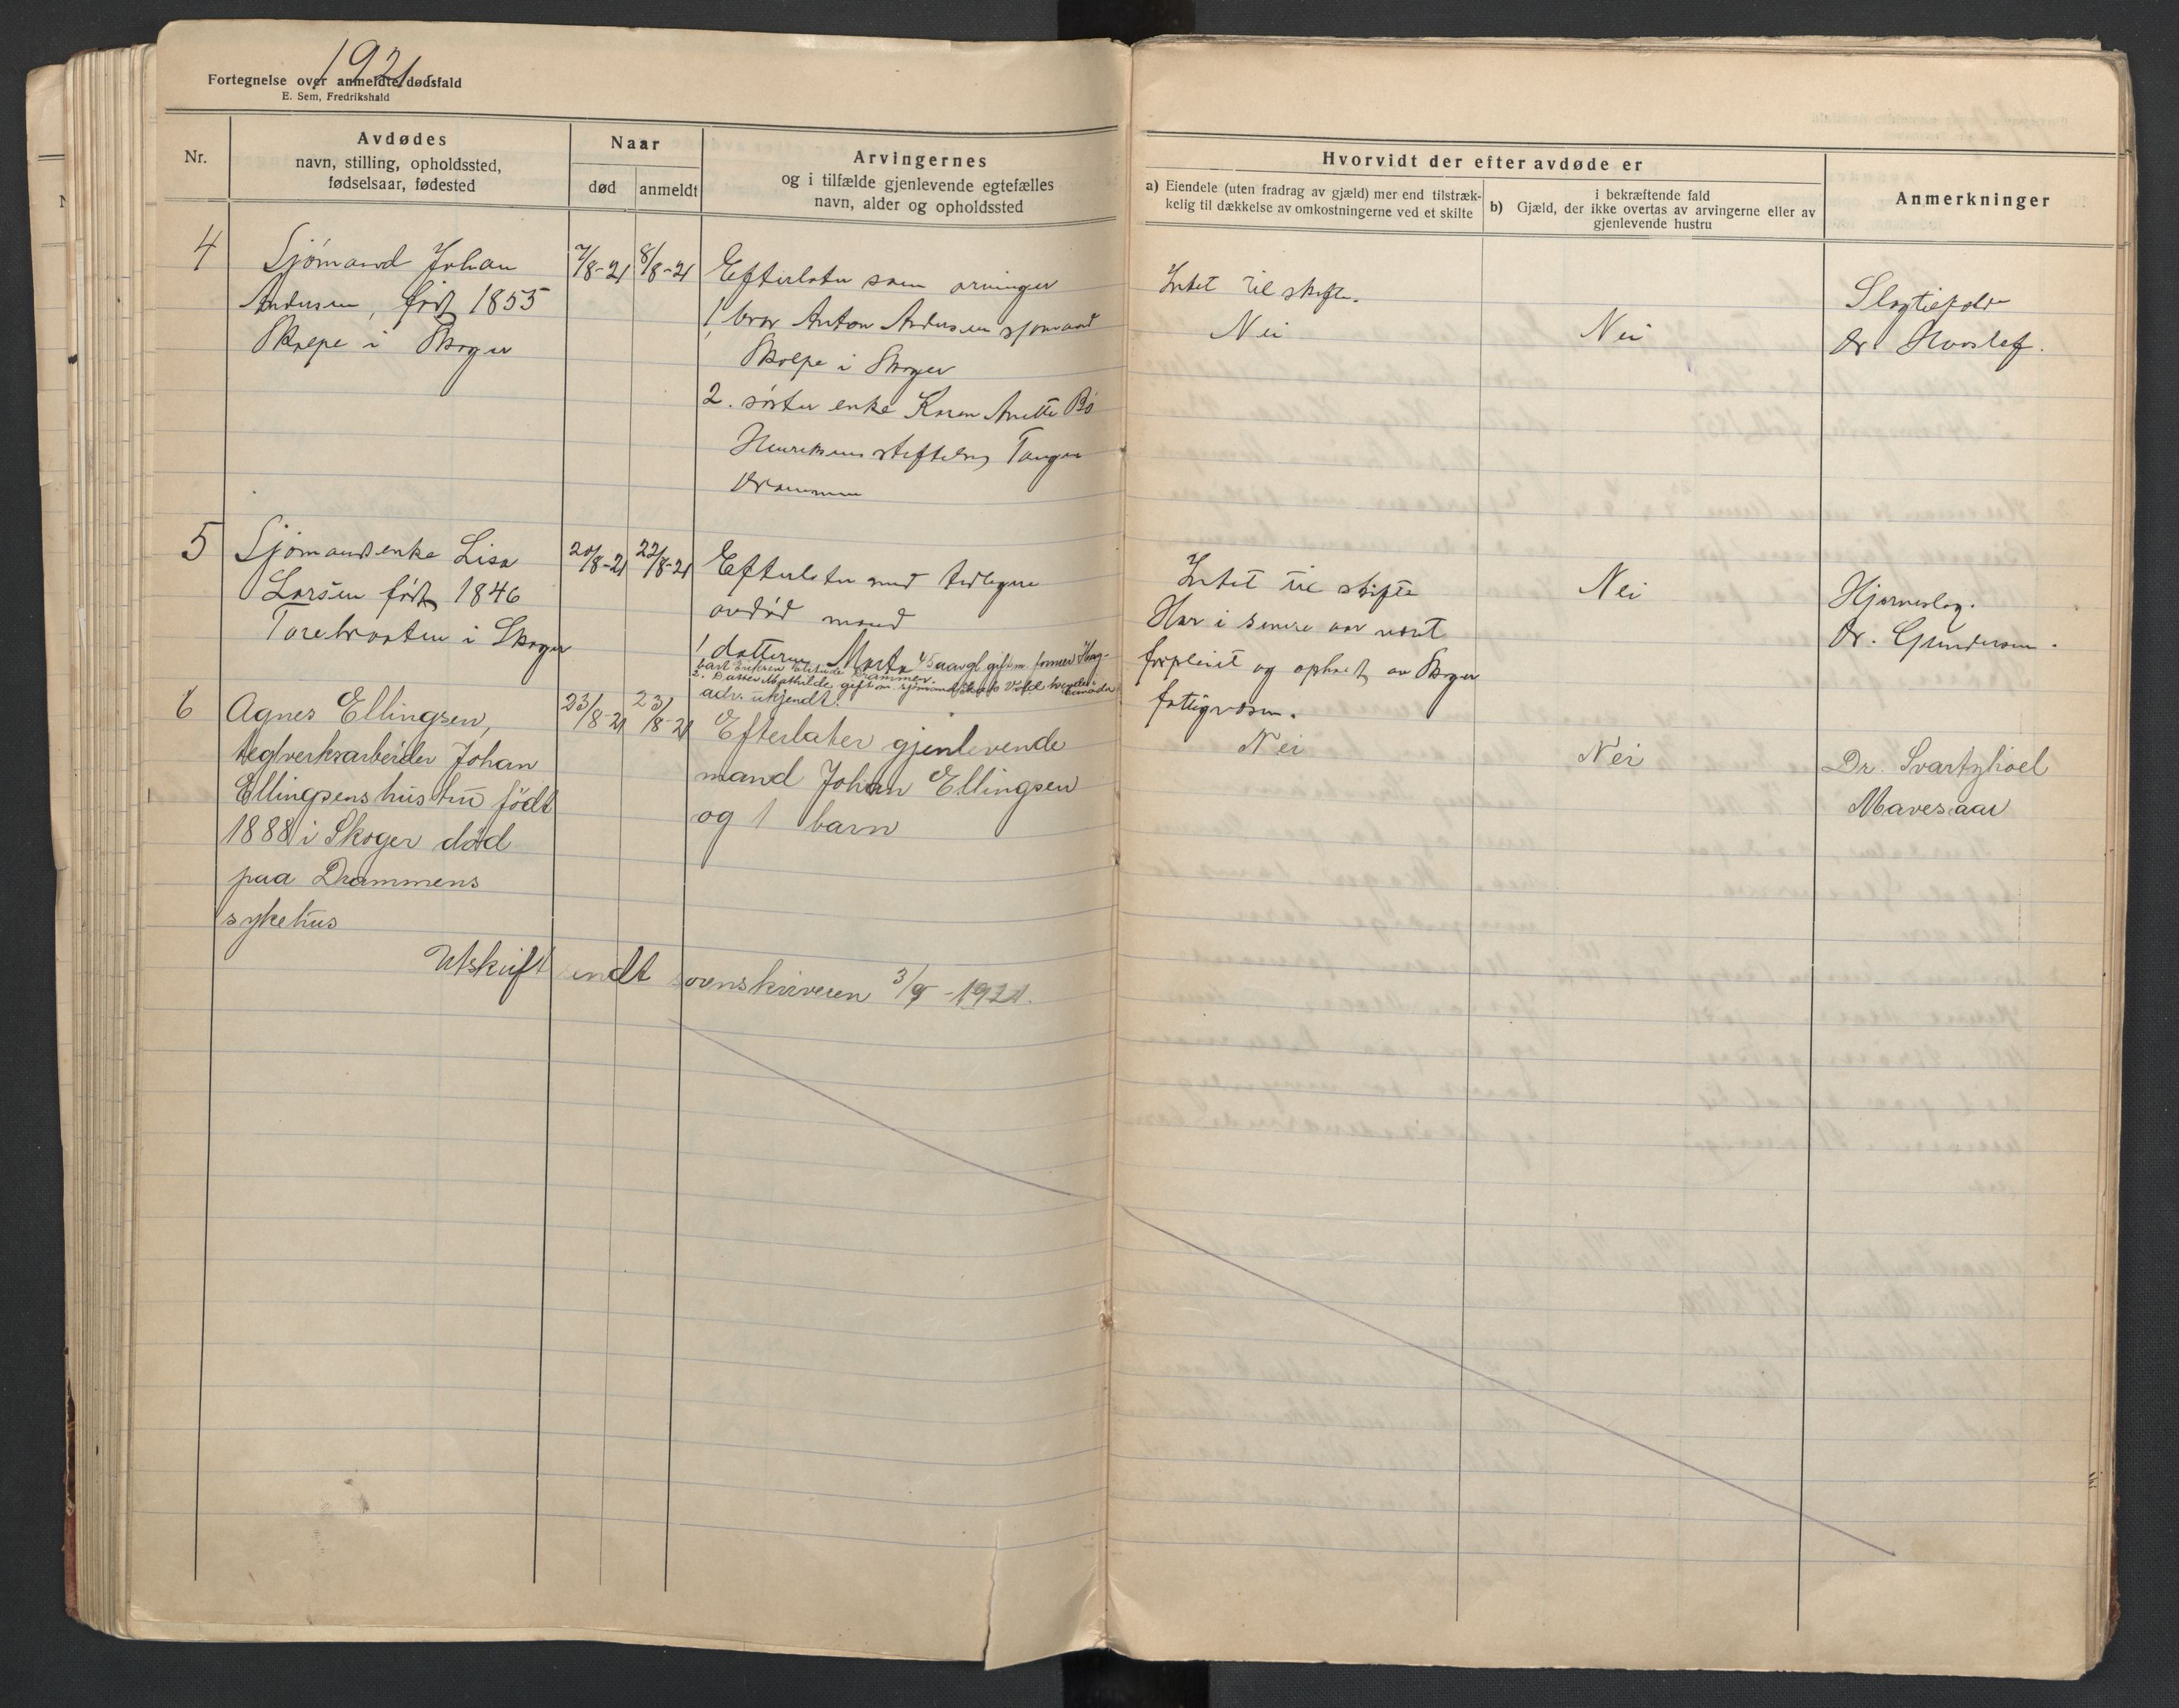 1921
Fortegnelse over anmeldte dødsfald
E. Sem, Fredrikshald
Nr.
Avdødes
navn, stilling, opholdssted,
fødselsaar, fødested
Naar
død
anmeldt
Arvingernes
og i tilfælde gjenlevende egtefælles
navn, alder og opholdssted
Hvorvidt der efter avdøde er
a) Eiendele (uten fradrag av gjæld) mer end tilstræk-
kelig til dækkelse av omkostningerne ved et skifte
b)
i bekræftende fald
Gjæld, der ikke overtas av arvingerne eller av
gjenlevende hustru
Anmerkninger
4
Sjømand Johan
Andersen, født 1855
Skalpe i Skoger
7/8-21
8/8-21
Efterlater som arvinger
1 bror Anton Andersen sjømand
Skalpe i Skoger
2. søster enke Karen Anette Bø
Henriksens stiftelse, Tangen
Drammen
Intet til skifte.
Nei
Nei
Dr. Hvoslef.
5
Sjømandsenke Lisa
Larsen født 1846
Torebraaten i Skoger
20/8-21
22/8-21
Efterlater med tidligere
avdød mand
1 datteren Marta 45 aar gl. gift m. former Haag-
bart Eriksen Drammen.
2. Datter Mathilde, gift m. sjømand
adr. ukjendt.
Intet til skifte
Har i senere aar været
forpleiet og opholdt av Skoger
fattigvæsen.
Nei
Hjerneslag.
Dr. Gundersen.
6
Agnes Ellingsen,
teglverksarbeider Johan
Ellingsens hustru født
1888 i Skoger død
paa Drammens
sykehus
23/8-21
23/8-21
Efterlater gjenlevende
mand Johan Ellingsen
og 1 barn
Nei
Nei
Dr. Svartzhoel
Mavesaar
Utskrift sendt sorenskriveren 3/9-1921.